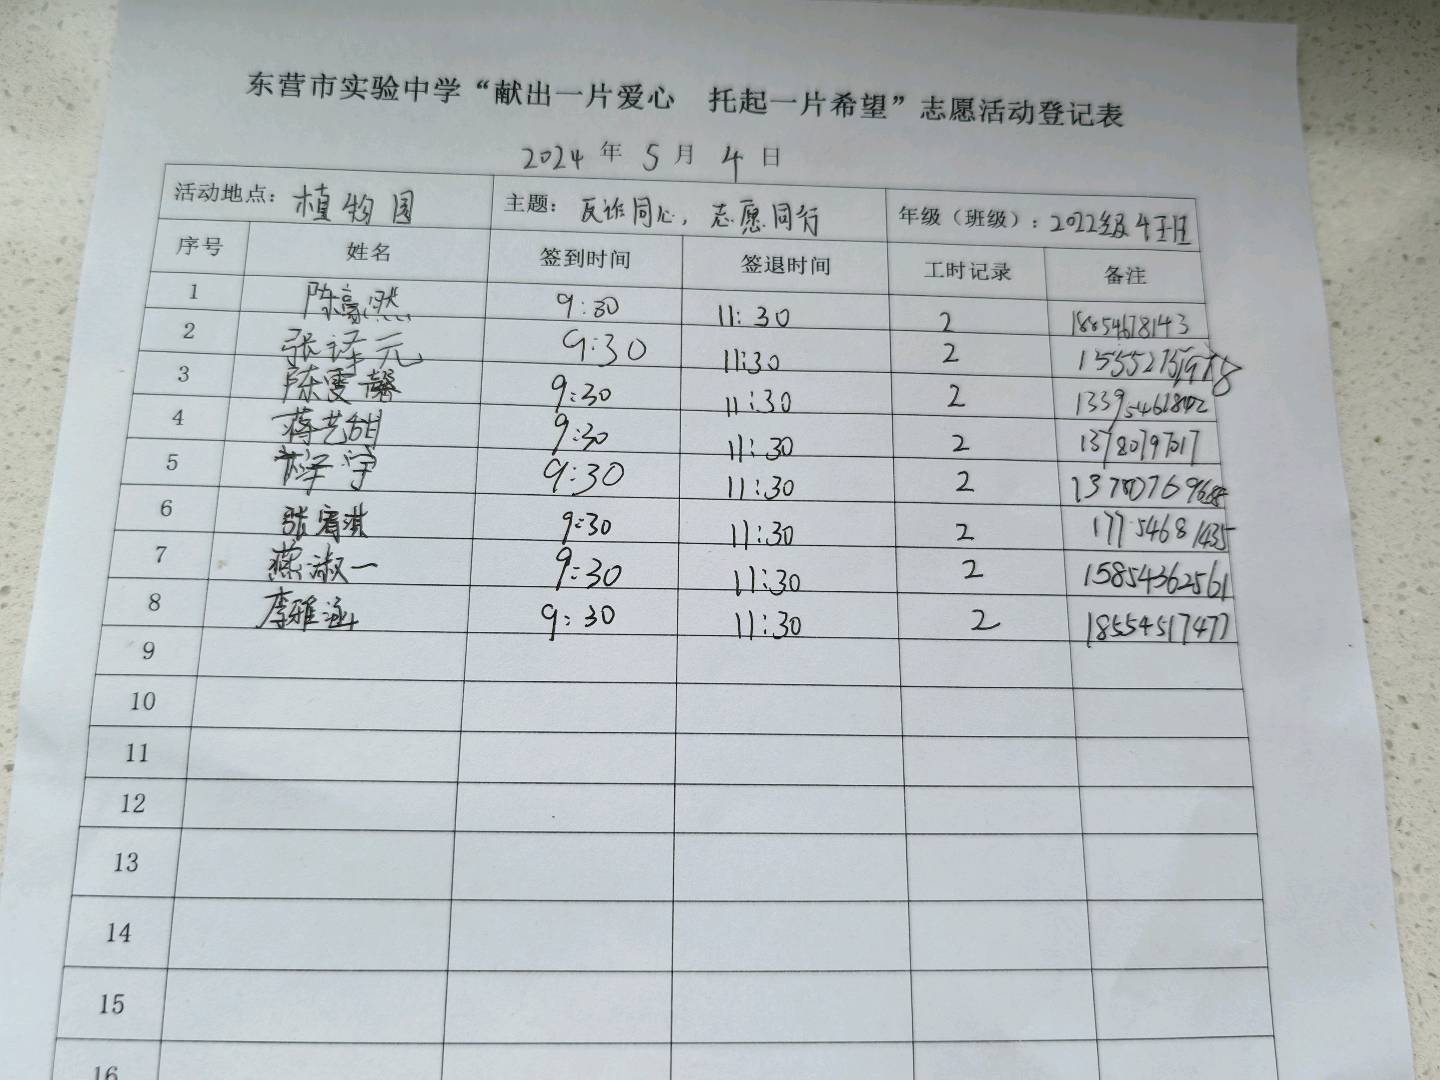 东营市实验中学“献出一片爱心 托起一片希望”志愿活动登记表
2024 年 5 月 4 日
活动地点：植物园 主题：反诈同心，志愿同行 年级（班级）：2022级4班
序号 姓名 签到时间 签退时间 工时记录 备注
1 陈豪然 9:30 11:30 2 18854678143
2 张译元 9:30 11:30 2
3 陈雯馨 9:30 11:30 2 13395461802
4 蒋艺甜 9:30 11:30 2 13780797017
5 宇 9:30 11:30 2
6 张宥淇 9:30 11:30 2 17754681435
7 燕淑一 9:30 11:30 2 15854362561
8 李雅涵 9:30 11:30 2 18554517477
9
10
11
12
13
14
15
16